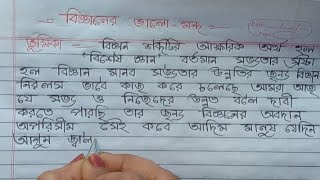 বিজ্ঞানের ভালো-মন্দ
ভূমিকা :- বিজ্ঞান শব্দটির আক্ষরিক অর্থ হল
'বিশেষ জ্ঞান' বর্তমান সভ্যতার স্রষ্টা
হল বিজ্ঞান মানব সভ্যতার উন্নতির জন্য বিজ্ঞান
নিরলস ভাবে কাজ করে চলেছে আমরা আজ
যে সভ্য ও নিজেদের উন্নত বলে দাবী
করতে পারছি তার জন্য বিজ্ঞানের অবদান
অপরিসীম সেই কবে আদিম মানুষ যেদিন
আগুন জ্বাল